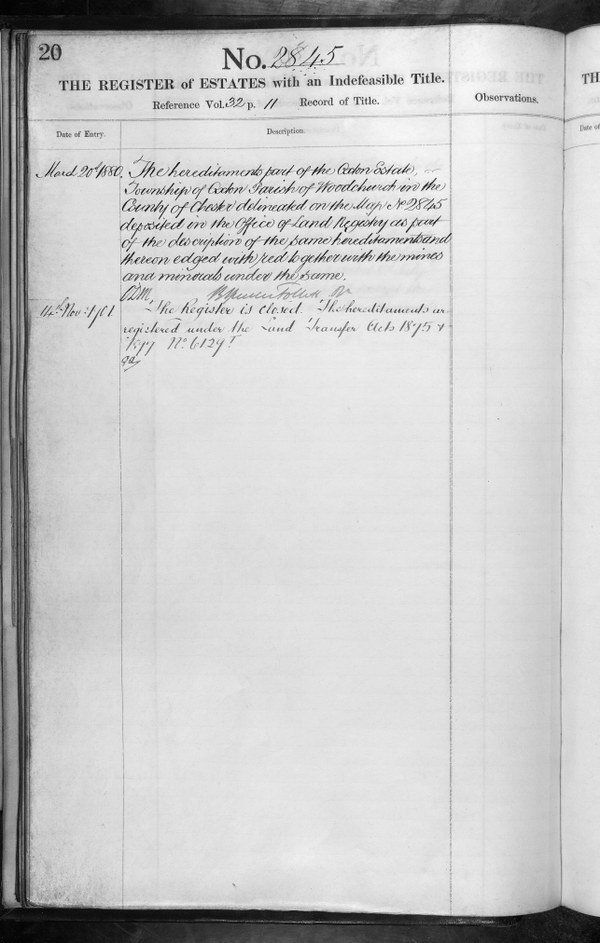 20
No. 2845
THE REGISTER of ESTATES with an Indefeasible Title.
Reference Vol. 32 p. 11 Record of Title.
Observations.
Date of Entry.
Description.
March 20th 1880. The hereditaments part of the Oxton Estate, in
Township of Oxton Parish of Woodchurch in the
County of Chester delineated on the Map No 2845
deposited in the Office of Land Registry as part
of the description of the same hereditaments and
thereon edged with red together with the mines
and minerals under the same.
Follett
14th Nov: 1901 The Register is closed. The hereditaments are
registered under the Land Transfer Acts 1875 &
1897 No. 61297
TH
Date of